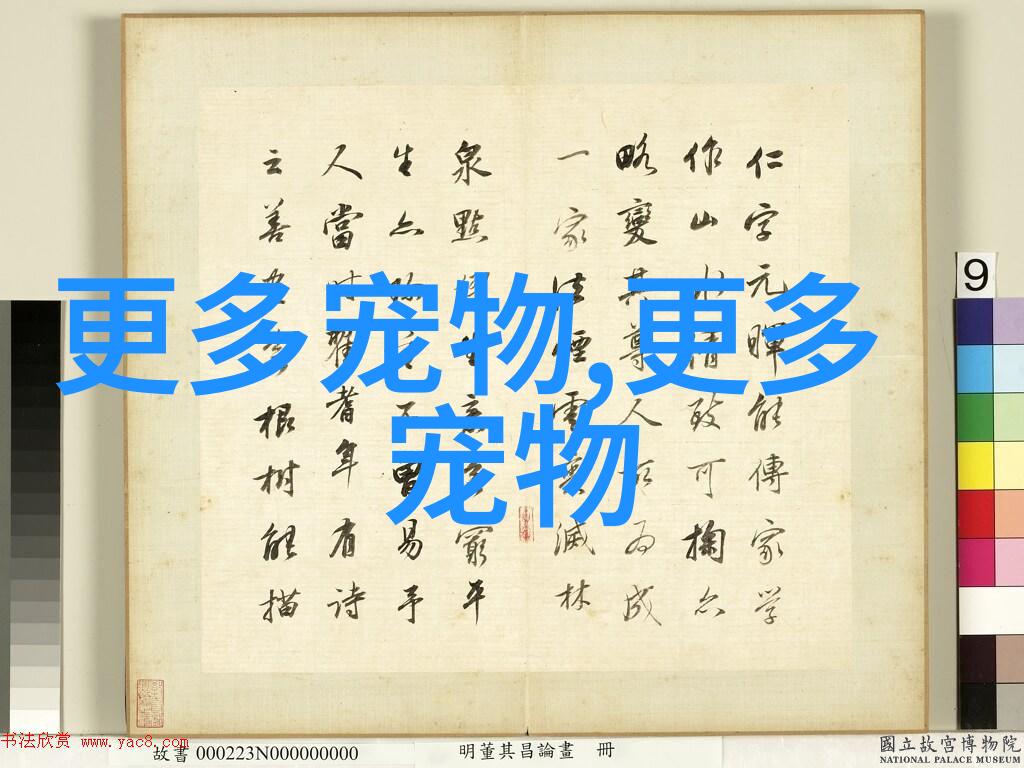 更多宠物,更多
宠物
仁字元暉能傳家学
作山水清致可掬亦
略變其尊人所为成
一家法煙雲滅林
泉點生意窮平
生亦易予
人當時翟耆年有詩
云善根樹能描
9
书法欣赏 www.yac8.com
故書 000223N000000000
明董其昌論畫 冊
國立故宮博物院
NATIONAL PALACE MUSEUM